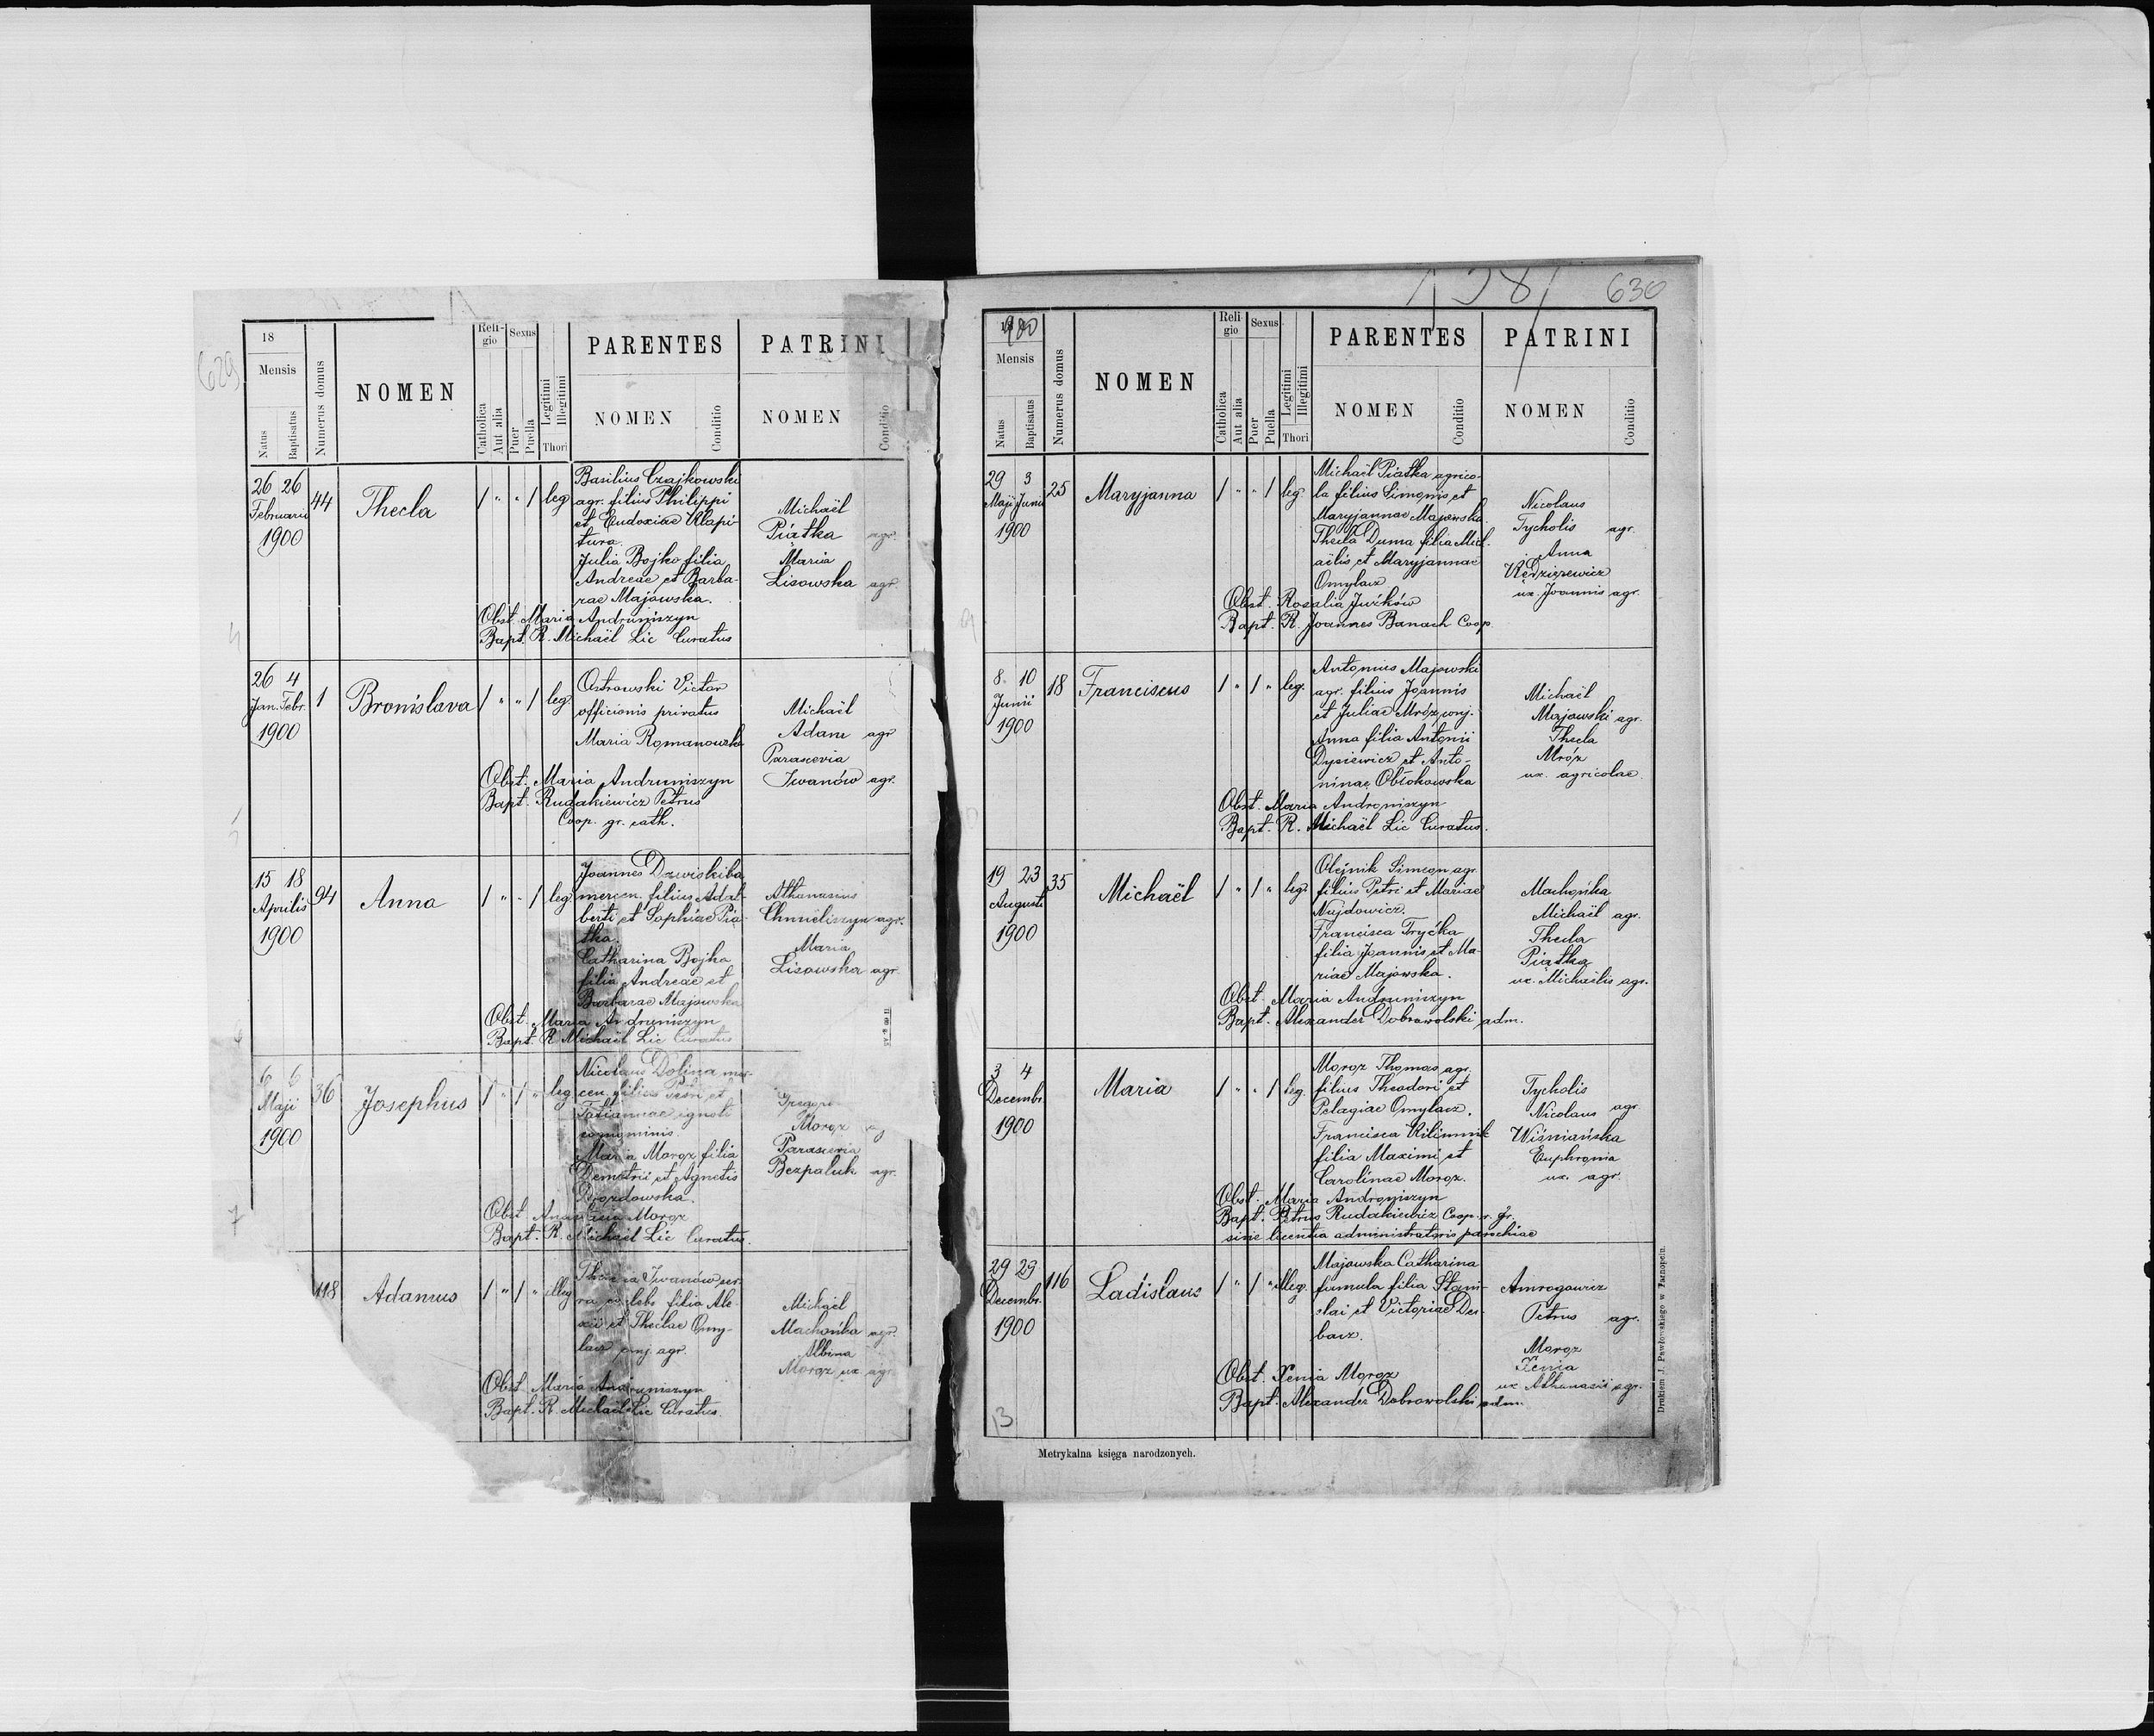 629
18
Mensis
Natus
Baptisatus
Numerus domus
NOMEN
Reli-
gio
Catholica
Aut alia
Sexus
Puer
Puella
Legitimi
Illegitimi
Thori
PARENTES
NOMEN
Conditio
PATRINI
NOMEN
Conditio
26 26
Februarii
1900
44
Thecla
/ " " / leg.
Basilius Czajkowski
agr. filius Philippi
et Eudoxiae Klapi-
tura.
Julia Bojko filia
Andreae et Barba-
rae Majowska.
Michaël
Piątka agr.
Maria
Lisowska agr.
Obst. Maria Andruniszyn
Bapt. R. Michaël Lic Curatus
26 4
Jan. Febr.
1900
1
Bronislava
/ " " / leg.
Ostrowski Victor
officionis privatus
Maria Romanowska
Michaël
Adam agr
Parascevia
Iwanów agr.
Obst. Maria Andruniszyn
Bapt. Rudakiewicz Petrus
Coop. gr. cath.
15 18
Aprilis
1900
94
Anna
/ " " / leg.
Joannes Dzwiskiba
mercen. filius Adal-
berti et Sophiae Pią-
tka.
Catharina Bojko
filia Andreae et
Barbarae Majowska
Athanasius
Chmieliszyn agr.
Maria
Lisowska agr.
Obst. Maria Andruniszyn
Bapt. R. Michaël Lic Curatus
6 6
Maji
1900
36
Josephus
/ " / " leg.
Nicolaus Dolina mer-
cen. filius Petri et
Tatiannae ignoti
cognominis.
Maria Moroz filia
Demetrii et Agnetis
Drozdowska.
Moroz
Parascevia
Bezpaluk agr.
Obst. Moroz
Bapt. R. Michaël Lic Curatus.
7
118
Adamus
/ " / " illeg
Iwanów ser-
filia Ale-
xii et Theclae Omy-
larz conj. agr.
Michaël
Machońka agr.
Albina
Moroz ux. agr.
Obst. Maria Andruniszyn
Bapt. R. Michaël Lic Curatus.
630
1900
Mensis
Natus
Baptisatus
Numerus domus
NOMEN
Reli-
gio
Catholica
Aut alia
Sexus
Puer
Puella
Legitimi
Illegitimi
Thori
PARENTES
NOMEN
Conditio
PATRINI
NOMEN
Conditio
29 3
Maji Junii
1900
25
Maryjanna
/ " " / leg.
Michaël Piatka agrico-
la filius Simonis et
Maryjannae Majewska.
Thecla Duma filia Mich-
aëlis et Maryjannae
Omylarz
Nicolaus
Tycholis agr.
Anna
Kędzierewicz
ux. Joannis agr.
Obst. Rozalia Jurków
Bapt. R. Joannes Banach Coop.
8. 10
Junii
1900
18
Franciscus
/ " / " leg.
Antonius Majowski
agr. filius Joannis
et Juliae Mróz conj.
Anna filia Antonii
Dysiewicz et Anto-
ninae Obłokowska
Michaël
Majowski agr.
Thecla
Mróz
ux. agricolae.
Obst. Maria Androniszyn
Bapt. R. Michaël Lic Curatus.
19 23
Augusti
1900
35
Michaël
/ " / " leg.
Olejnik Simeon agr.
filius Petri et Mariae
Najdowicz.
Francisca Tryćka
filia Joannis et Ma-
riae Majowska.
Machońka
Michaël agr.
Thecla
Piatka
ux. Michaëlis agr.
Obst. Maria Andruniszyn
Bapt. Alexander Dobrowolski adm.
3 4
Decembr.
1900
Maria
/ " " / leg.
Moroz Thomas agr.
filius Theodori et
Pelagiae Omylarz.
Francisca Kilimnik
filia Maximi et
Carolinae Moroz.
Tycholis
Nicolaus agr.
Wiśniańska
Euphronia
ux. agr.
Obst. Maria Androniszyn
Bapt. Petrus Rudakiewicz Coop. r. gr.
sine licentia administratoris parochiae
29 29
Decembr.
1900
116
Ladislaus
/ " / " illeg.
Majowska Catharina
famula filia Stani-
slai et Victoriae Der-
barz.
Amrogowicz
Petrus agr.
Moroz
Xenia
ux. Athanasii agr.
Obst. Xenia Moroz
Bapt. Alexander Dobrowolski adm.
13
Metrykalna księga narodzonych.
Drukiem J. Pawłowskiego w Tarnopolu.